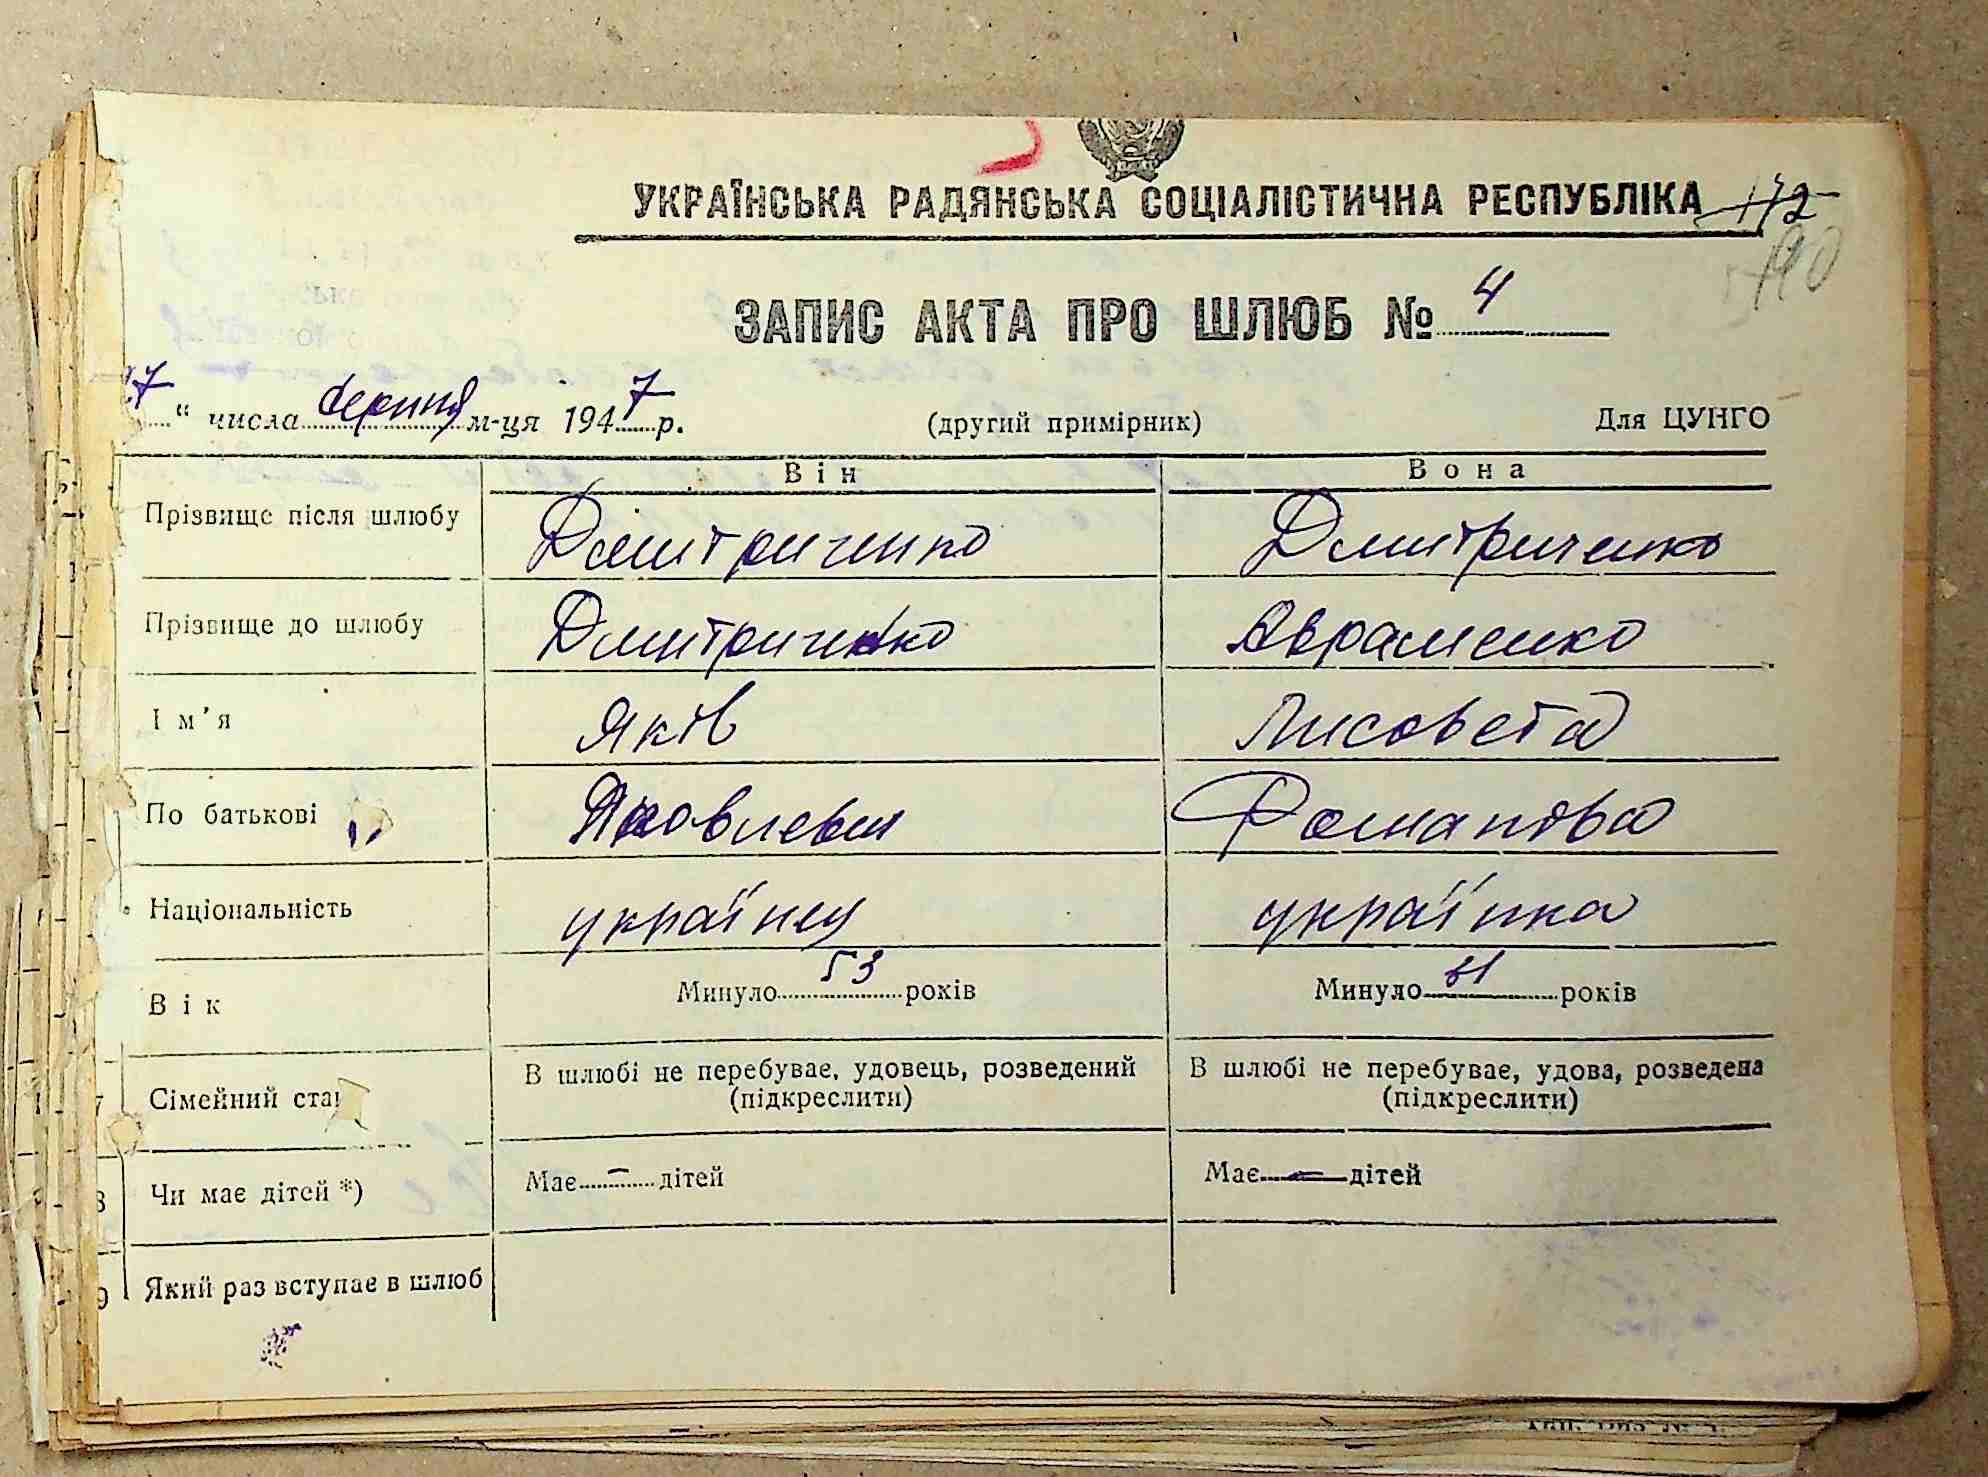 УКРАЇНСЬКА РАДЯНСЬКА СОЦІАЛІСТИЧНА РЕСПУБЛІКА 172
190
ЗАПИС АКТА ПРО ШЛЮБ № 4
7 " числа серпня м-ця 1947 р. (другий примірник) Для ЦУНГО
Він Вона
Прізвище після шлюбу Дмитриченко Дмитриченко
Прізвище до шлюбу Дмитриченко Авраменко
Ім'я Яків Лисовета
По батькові Яковлевич Романовна
Національність українец українка
Вік Минуло 53 років Минуло 51 років
Сімейний стан В шлюбі не перебуває, удовець, розведений (підкреслити) В шлюбі не перебуває, удова, розведена (підкреслити)
8 Чи має дітей *) Має — дітей Має — дітей
9 Який раз вступає в шлюб